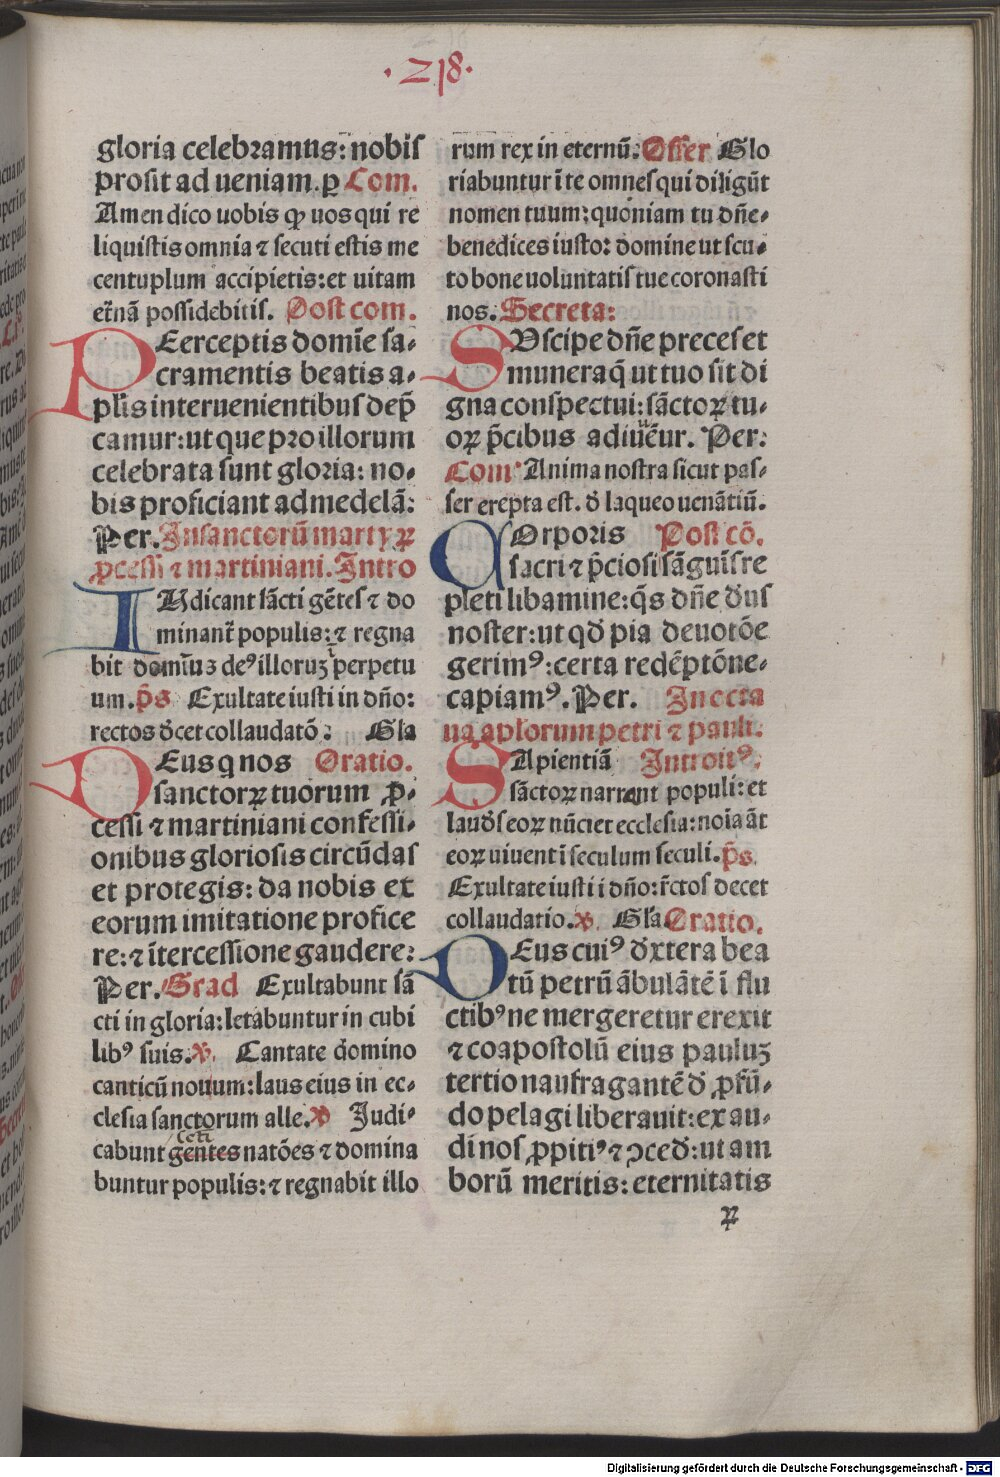 ·218·
gloria celebramus: nobis
prosit ad ueniam. ꝑ Com.
Amen dico uobis ꝙ uos qui re
liquistis omnia ⁊ secuti estis me
centuplum accipietis: et uitam
et̃nã possidebitis. Post com.
PEerceptis domĩe sa-
cramentis beatis a-
pl̃is interuenientibus dep̃
camur: ut que pro illorum
celebrata sunt gloria: no-
bis proficiant ad medelã:
Per. In sanctorũ martyꝝ
ꝓcessi ⁊ martiniani. Intro
IUdicant sãcti gẽtes ⁊ do
minant̃ populis: ⁊ regna
bit domĩuꝫ deꝰ illoruꝫ ĩ perpetu
um. p̃s Exultate iusti in dño:
rectos ðcet collaudatõ: Gla
DEus q nos Oratio.
sanctorꝝ tuorum ꝓ-
cessi ⁊ martiniani confessi-
onibus gloriosis circũdas
et protegis: da nobis et
eorum imitatione profice
re: ⁊ ĩtercessione gaudere:
Per. Grad Exultabunt sã
cti in gloria: letabuntur in cubi
libꝰ suis. ℣. Cantate domino
canticũ nouum: laus eius in ec-
clesia sanctorum alle. ℣ Judi-
cãti
cabunt gentes natões ⁊ domina
buntur populis: ⁊ regnabit illo
rum rex in eternũ. Offer Glo
riabuntur ĩ te omnes qui diligũt
nomen tuum; quoniam tu dñe-
benedices iusto: domine ut scu-
to bone uoluntatis tue coronasti
nos. Secreta:
SUscipe dñe preces et
munera q̃ ut tuo sit di
gna conspectui: sãctoꝝ tu-
oꝝ p̃cibus adiuuẽur. Per:
Com̃ Anima nostra sicut pas-
ser erepta est. ð laqueo uenãtiũ.
COrporis Post cõ.
sacri ⁊ p̃ciosi sãguĩs re
pleti libamine: q̃s dñe ðus
noster: ut qð pia deuotõe
gerimꝰ: certa redẽptõne-
capiamꝰ. Per. In octa
ua aplorum petri ⁊ pauli.
SApientiã Introitꝰ.
sãctoꝝ narrent populi: et
lauðs eoꝝ nũciet ecclesia: noĩa ãt
eoꝝ uiuent ĩ seculum seculi. p̃s
Exultate iusti i dño: r̃ctos decet
collaudatio. ℣ Gl̃a Oratio.
DEus cuiꝰ ðxtera bea
tũ petrũ ãbulãtẽ ĩ flu
ctibꝰ ne mergeretur erexit
⁊ coapostolũ eius pauluꝫ
tertio naufragantẽ ð ꝓfũ-
do pelagi liberauit: exau-
di nos ꝓpitiꝰ ⁊ ꝯceð: ut am
borũ meritis: eternitatis
ꝝ
Digitalisierung gefördert durch die Deutsche Forschungsgemeinschaft - DFG